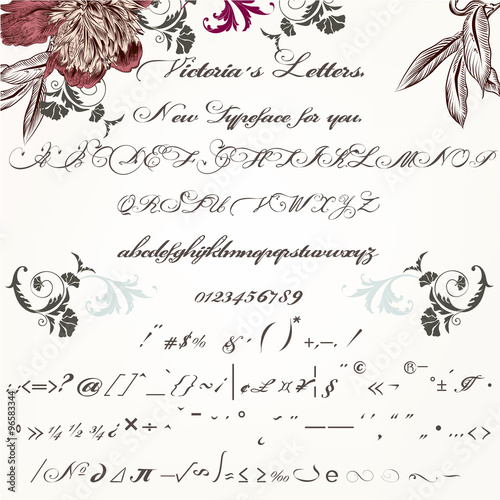 Victoria's Letters.
New Typeface for you.
A B C D E F G H I J K L M N O P
Q R S T U V W X Y Z
abcdefghijklmnopqrstuvwxyz
0123456789
! " #$% & ' ( ) * +,-. /
:<=>?@[]^_`{}~¡|¢£¤¥¦§¨©«¬®¯°±´¶·
º»¼½¾×÷
/№∂Δπ−√∞∫≈≤≥‰
96583344
Adobe Stock